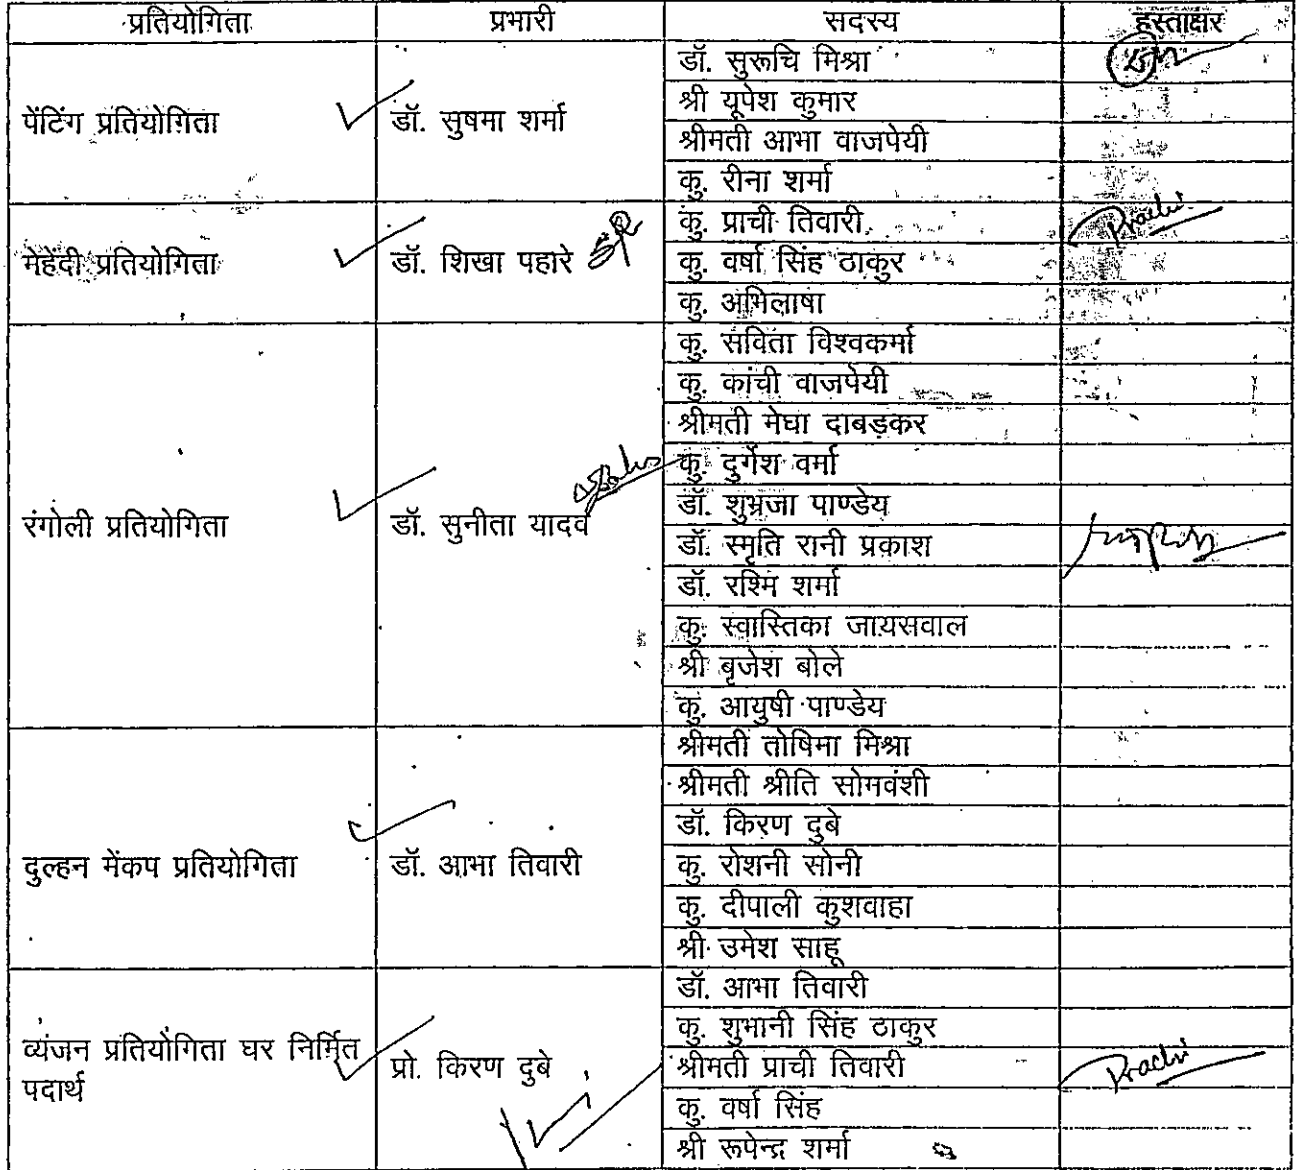 प्रतियोगिता प्रभारी सदस्य हस्ताक्षर
पेंटिंग प्रतियोगिता डॉ. सुषमा शर्मा
डॉ. सुरूचि मिश्रा
श्री यूपेश कुमार
श्रीमती आभा वाजपेयी
कु. रीना शर्मा
मेहेंदी प्रतियोगिता डॉ. शिखा पहारे
कु. प्राची तिवारी Prachi
कु. वर्षा सिंह ठाकुर
कु. अभिलाषा
रंगोली प्रतियोगिता डॉ. सुनीता यादव
कु. सविता विश्वकर्मा
कु. कांची वाजपेयी
श्रीमती मेघा दाबड़कर
कु. दुर्गेश वर्मा
डॉ. शुभ्रजा पाण्डेय
डॉ. स्मृति रानी प्रकाश
डॉ. रश्मि शर्मा
कु. स्वास्तिका जायसवाल
श्री बृजेश बोले
कु. आयुषी पाण्डेय
दुल्हन मेंकप प्रतियोगिता डॉ. आभा तिवारी
श्रीमती तोषिमा मिश्रा
श्रीमती श्रीति सोमवंशी
डॉ. किरण दुबे
कु. रोशनी सोनी
कु. दीपाली कुशवाहा
श्री उमेश साहू
व्यंजन प्रतियोगिता घर निर्मित
पदार्थ
प्रो. किरण दुबे
डॉ. आभा तिवारी
कु. शुभानी सिंह ठाकुर
श्रीमती प्राची तिवारी Prachi
कु. वर्षा सिंह
श्री रूपेन्द्र शर्मा